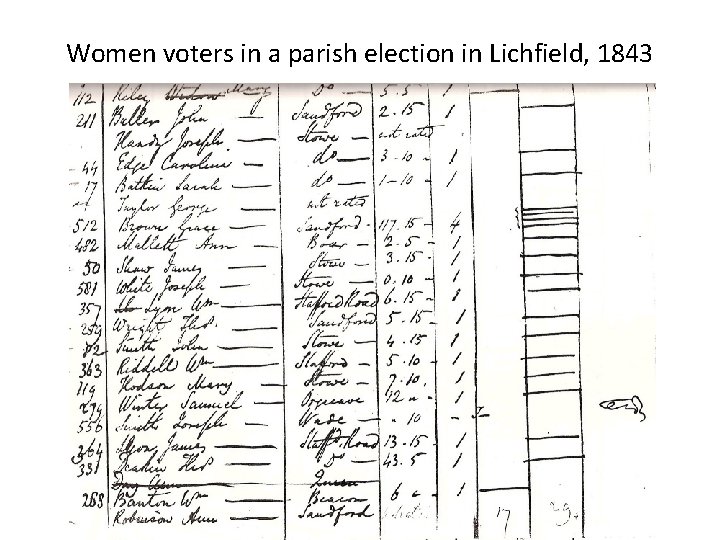 Women voters in a parish election in Lichfield, 1843
112 Riley Widow Mary Do 5.5 1
211 Baller John Sandford 2.15 1
Handy Joseph Stowe not rated
44 Edge Caroline do 3-10 1
17 Battkin Sarah do 1-10 1
Taylor George not rated
512 Brown Grace Sandford 117.15 4
482 Mallett Ann Boar 2.5 1
50 Shaw James Stowe 3.15 1
581 White Joseph Stowe 0.10 1
357 Lyon Wm Stafford Road 6.15 1
259 Wright Thos Sandford 5.15 1
82 Smith John Stowe 4.15 1
363 Riddell Wm Stafford 5.10 1
119 Hodson Mary Stowe 7.10. 1
279 Winter Samuel Orgreave 12 1
556 Smith Joseph Wade 10
264 James Staffd Road 13-15 1
331 Deakin Thos Do 43.5 1
Day Queen
263 Banton Wm Beacon 6 1
Robinson Ann Sandford 17 29